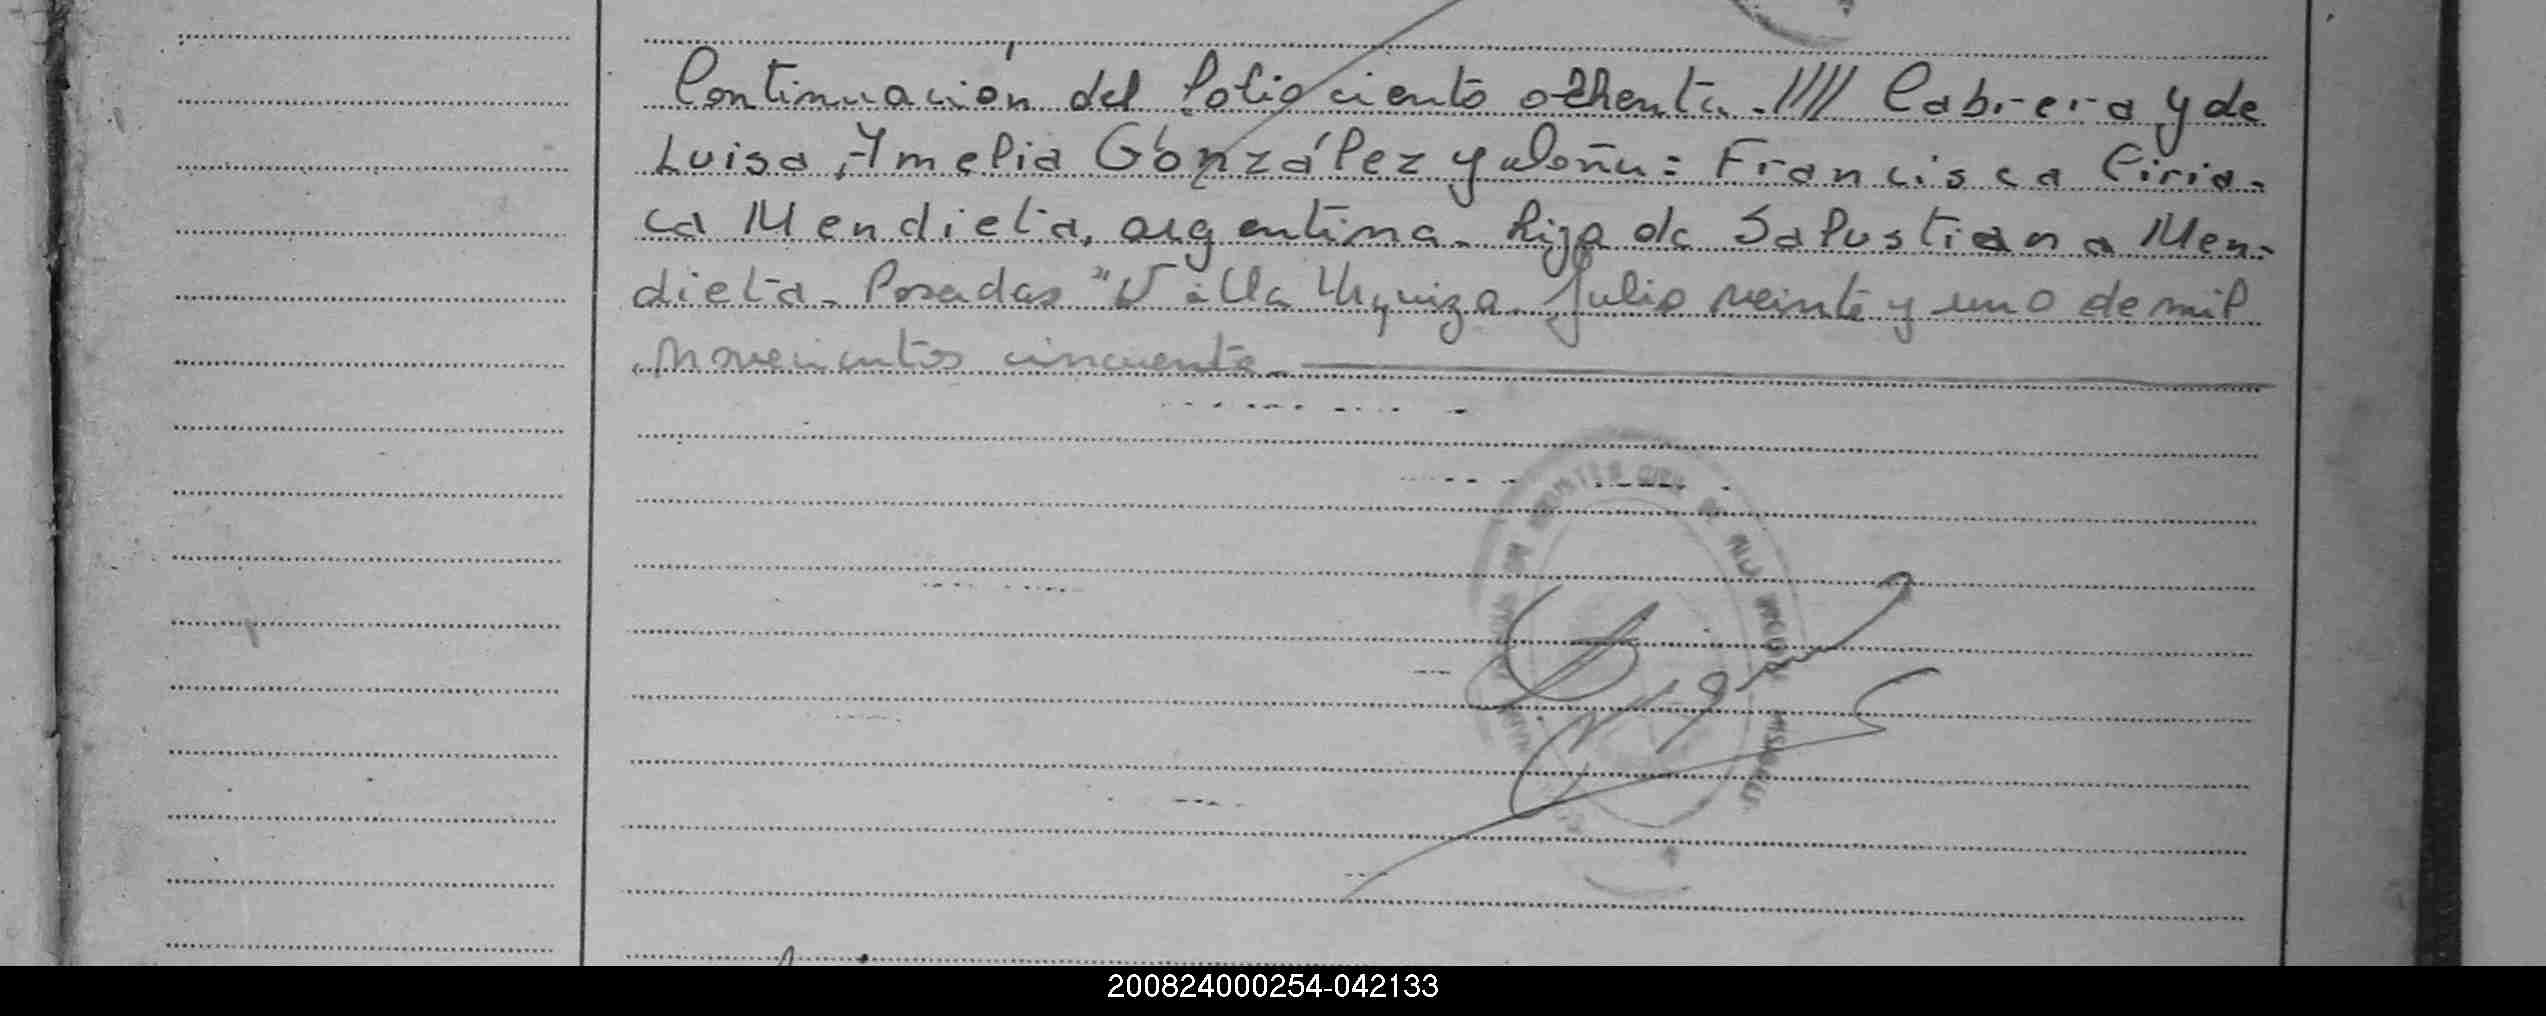 Continuación del folio ciento ochenta.//// Cabrera y de
Luisa Amelia González y doña: Francisca Ciria-
ca Mendieta, argentina. hija de Salustiana Men-
dieta. Posadas "Villa Urquiza. Julio veinte y uno de mil
novecientos cincuenta.
200824000254-042133